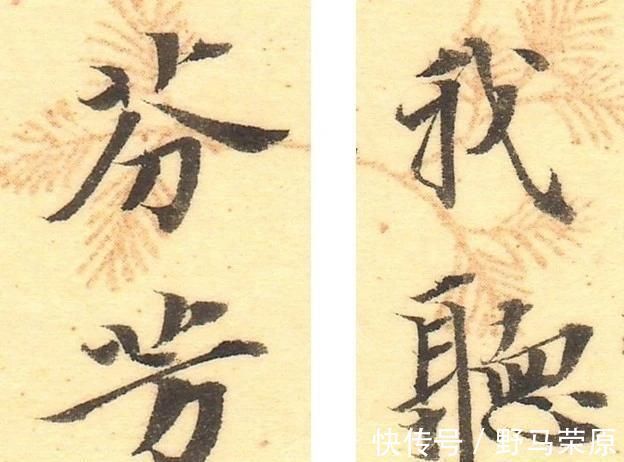 我聽
芬芳
快传号/野马荣原